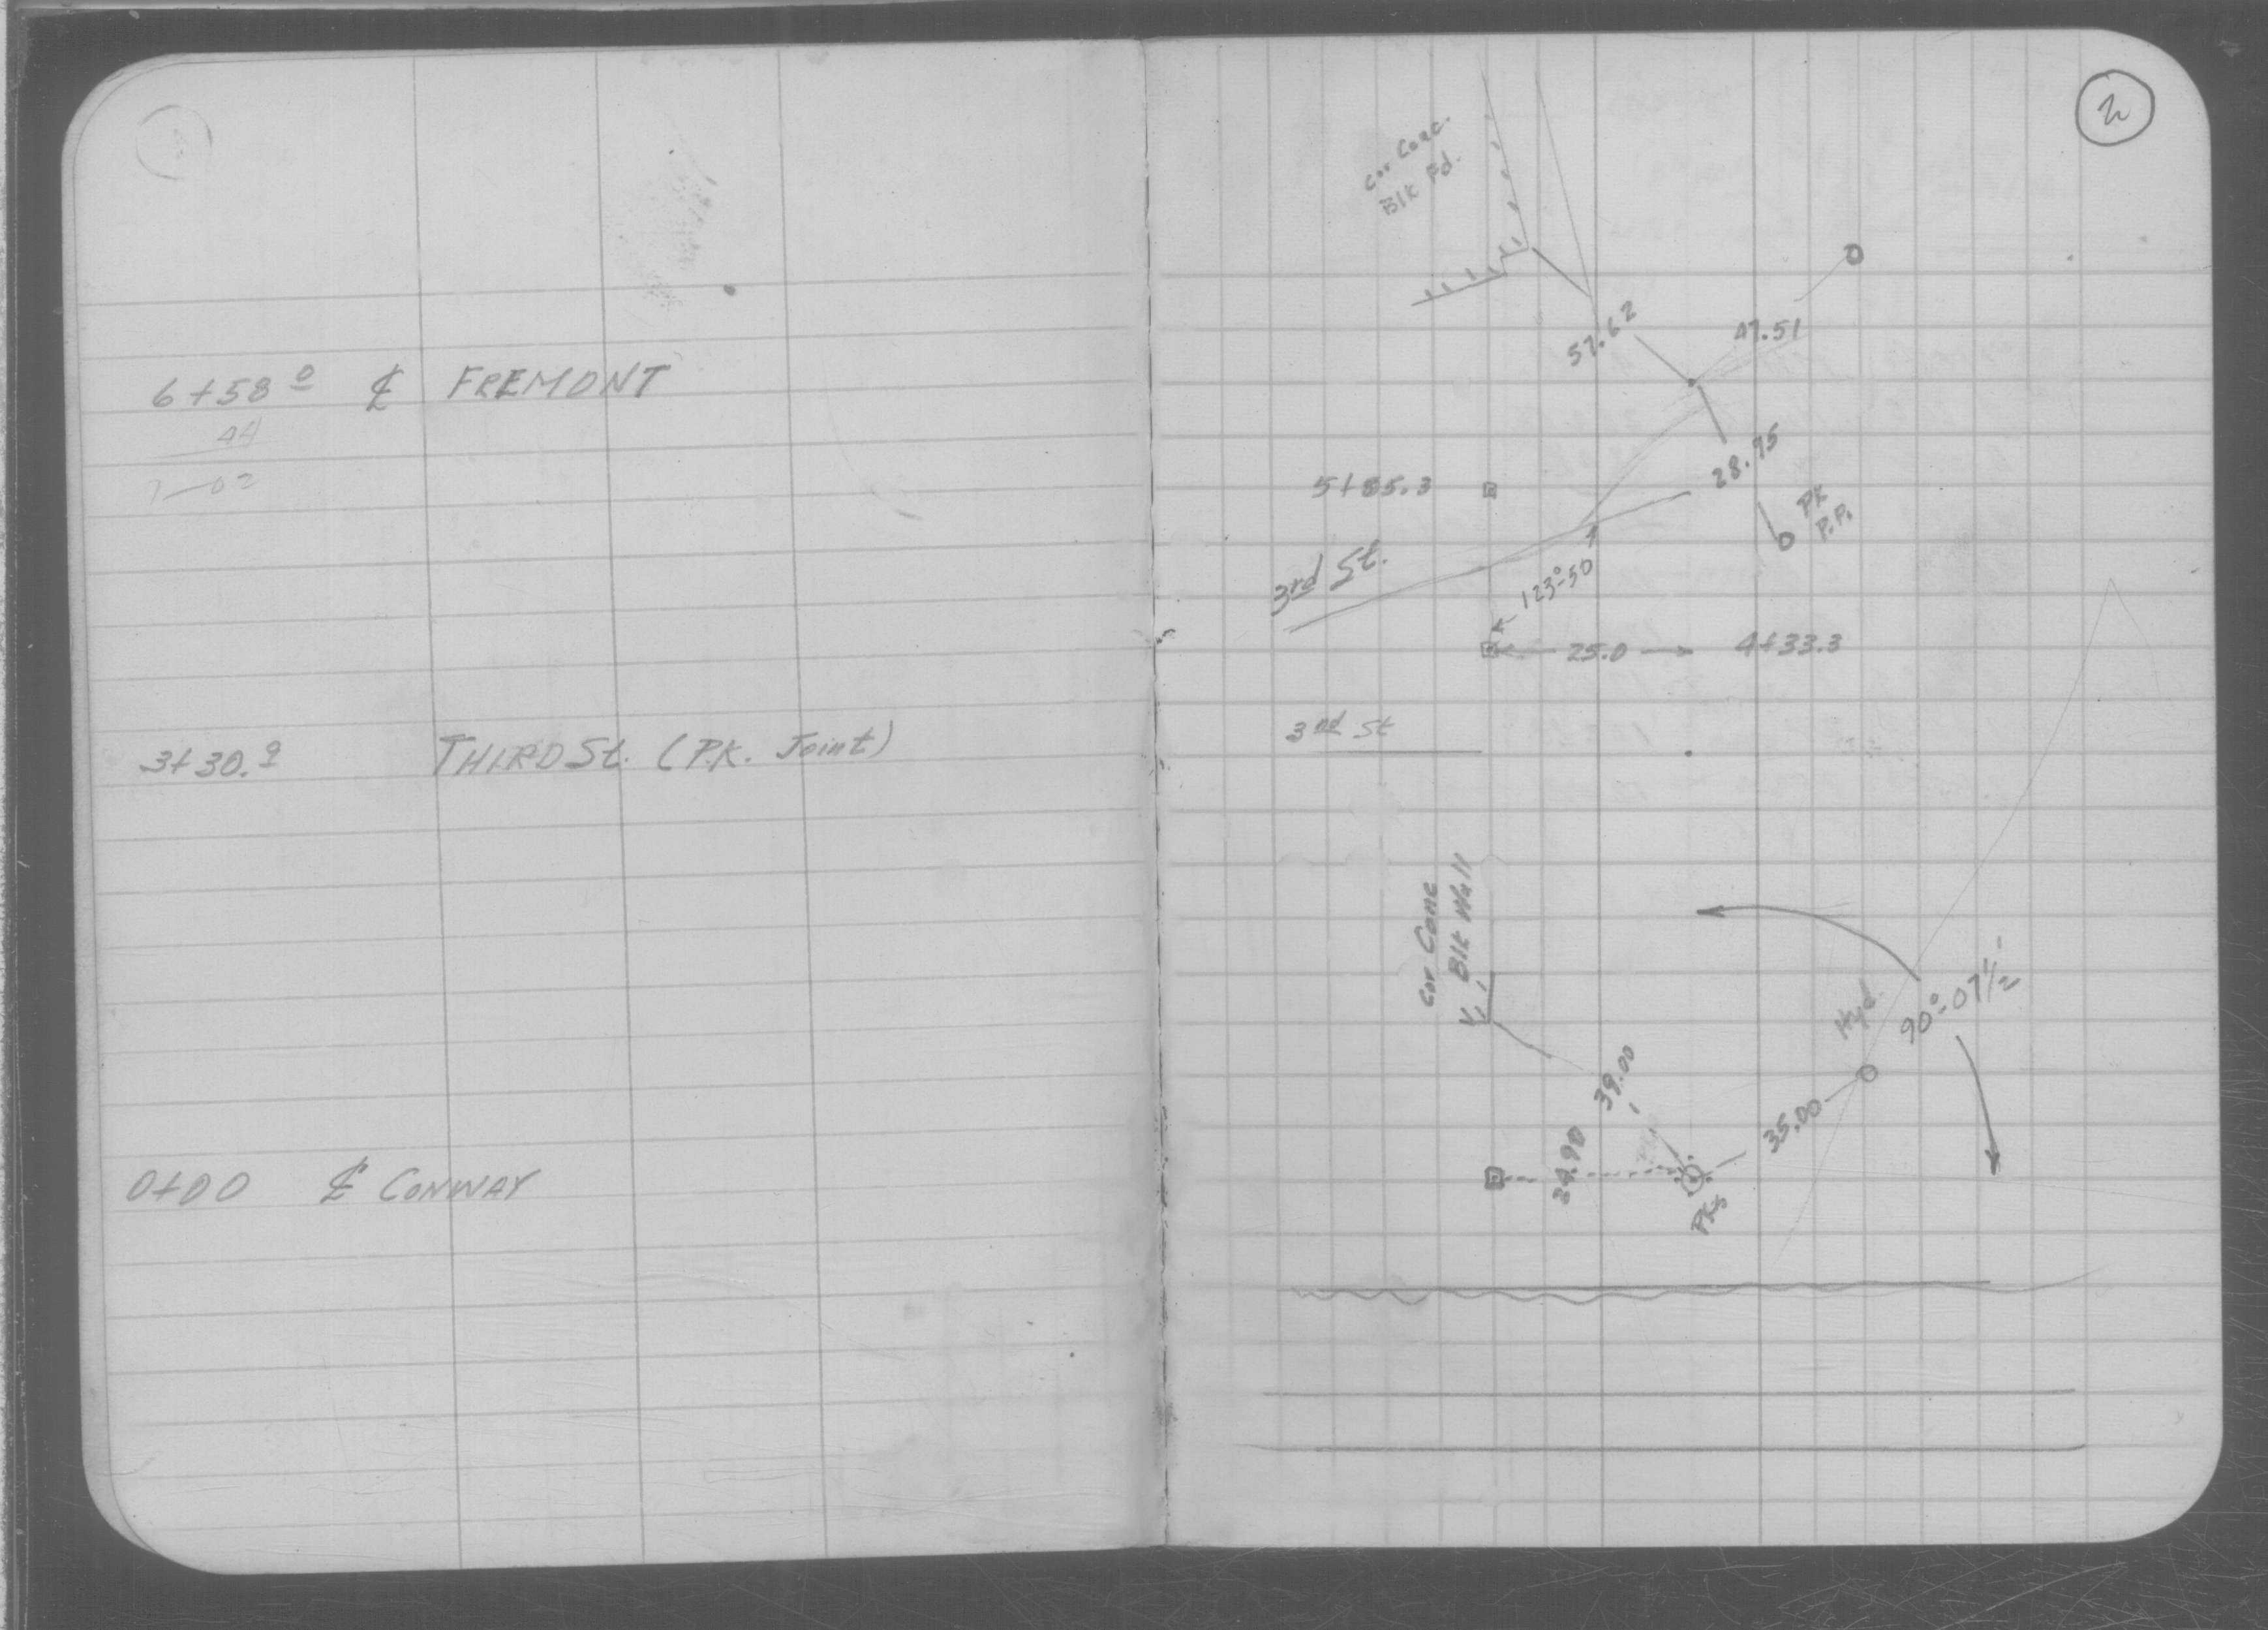 6+58 0 ℄ FREMONT
44
7-02
3+30.9 THIRD St. (P.K. Joint)
0+00 ℄ CONWAY
2
Cor Conc.
Blk Fd.
57.62
47.51
28.95
5+85.3
PK
P.P.
3rd St.
123°-50
25.0 4+33.3
3nd St
Cor Conc
Blk Wall
Hyd.
90°-07 1/2
39.00
35.00
24.90
PKs